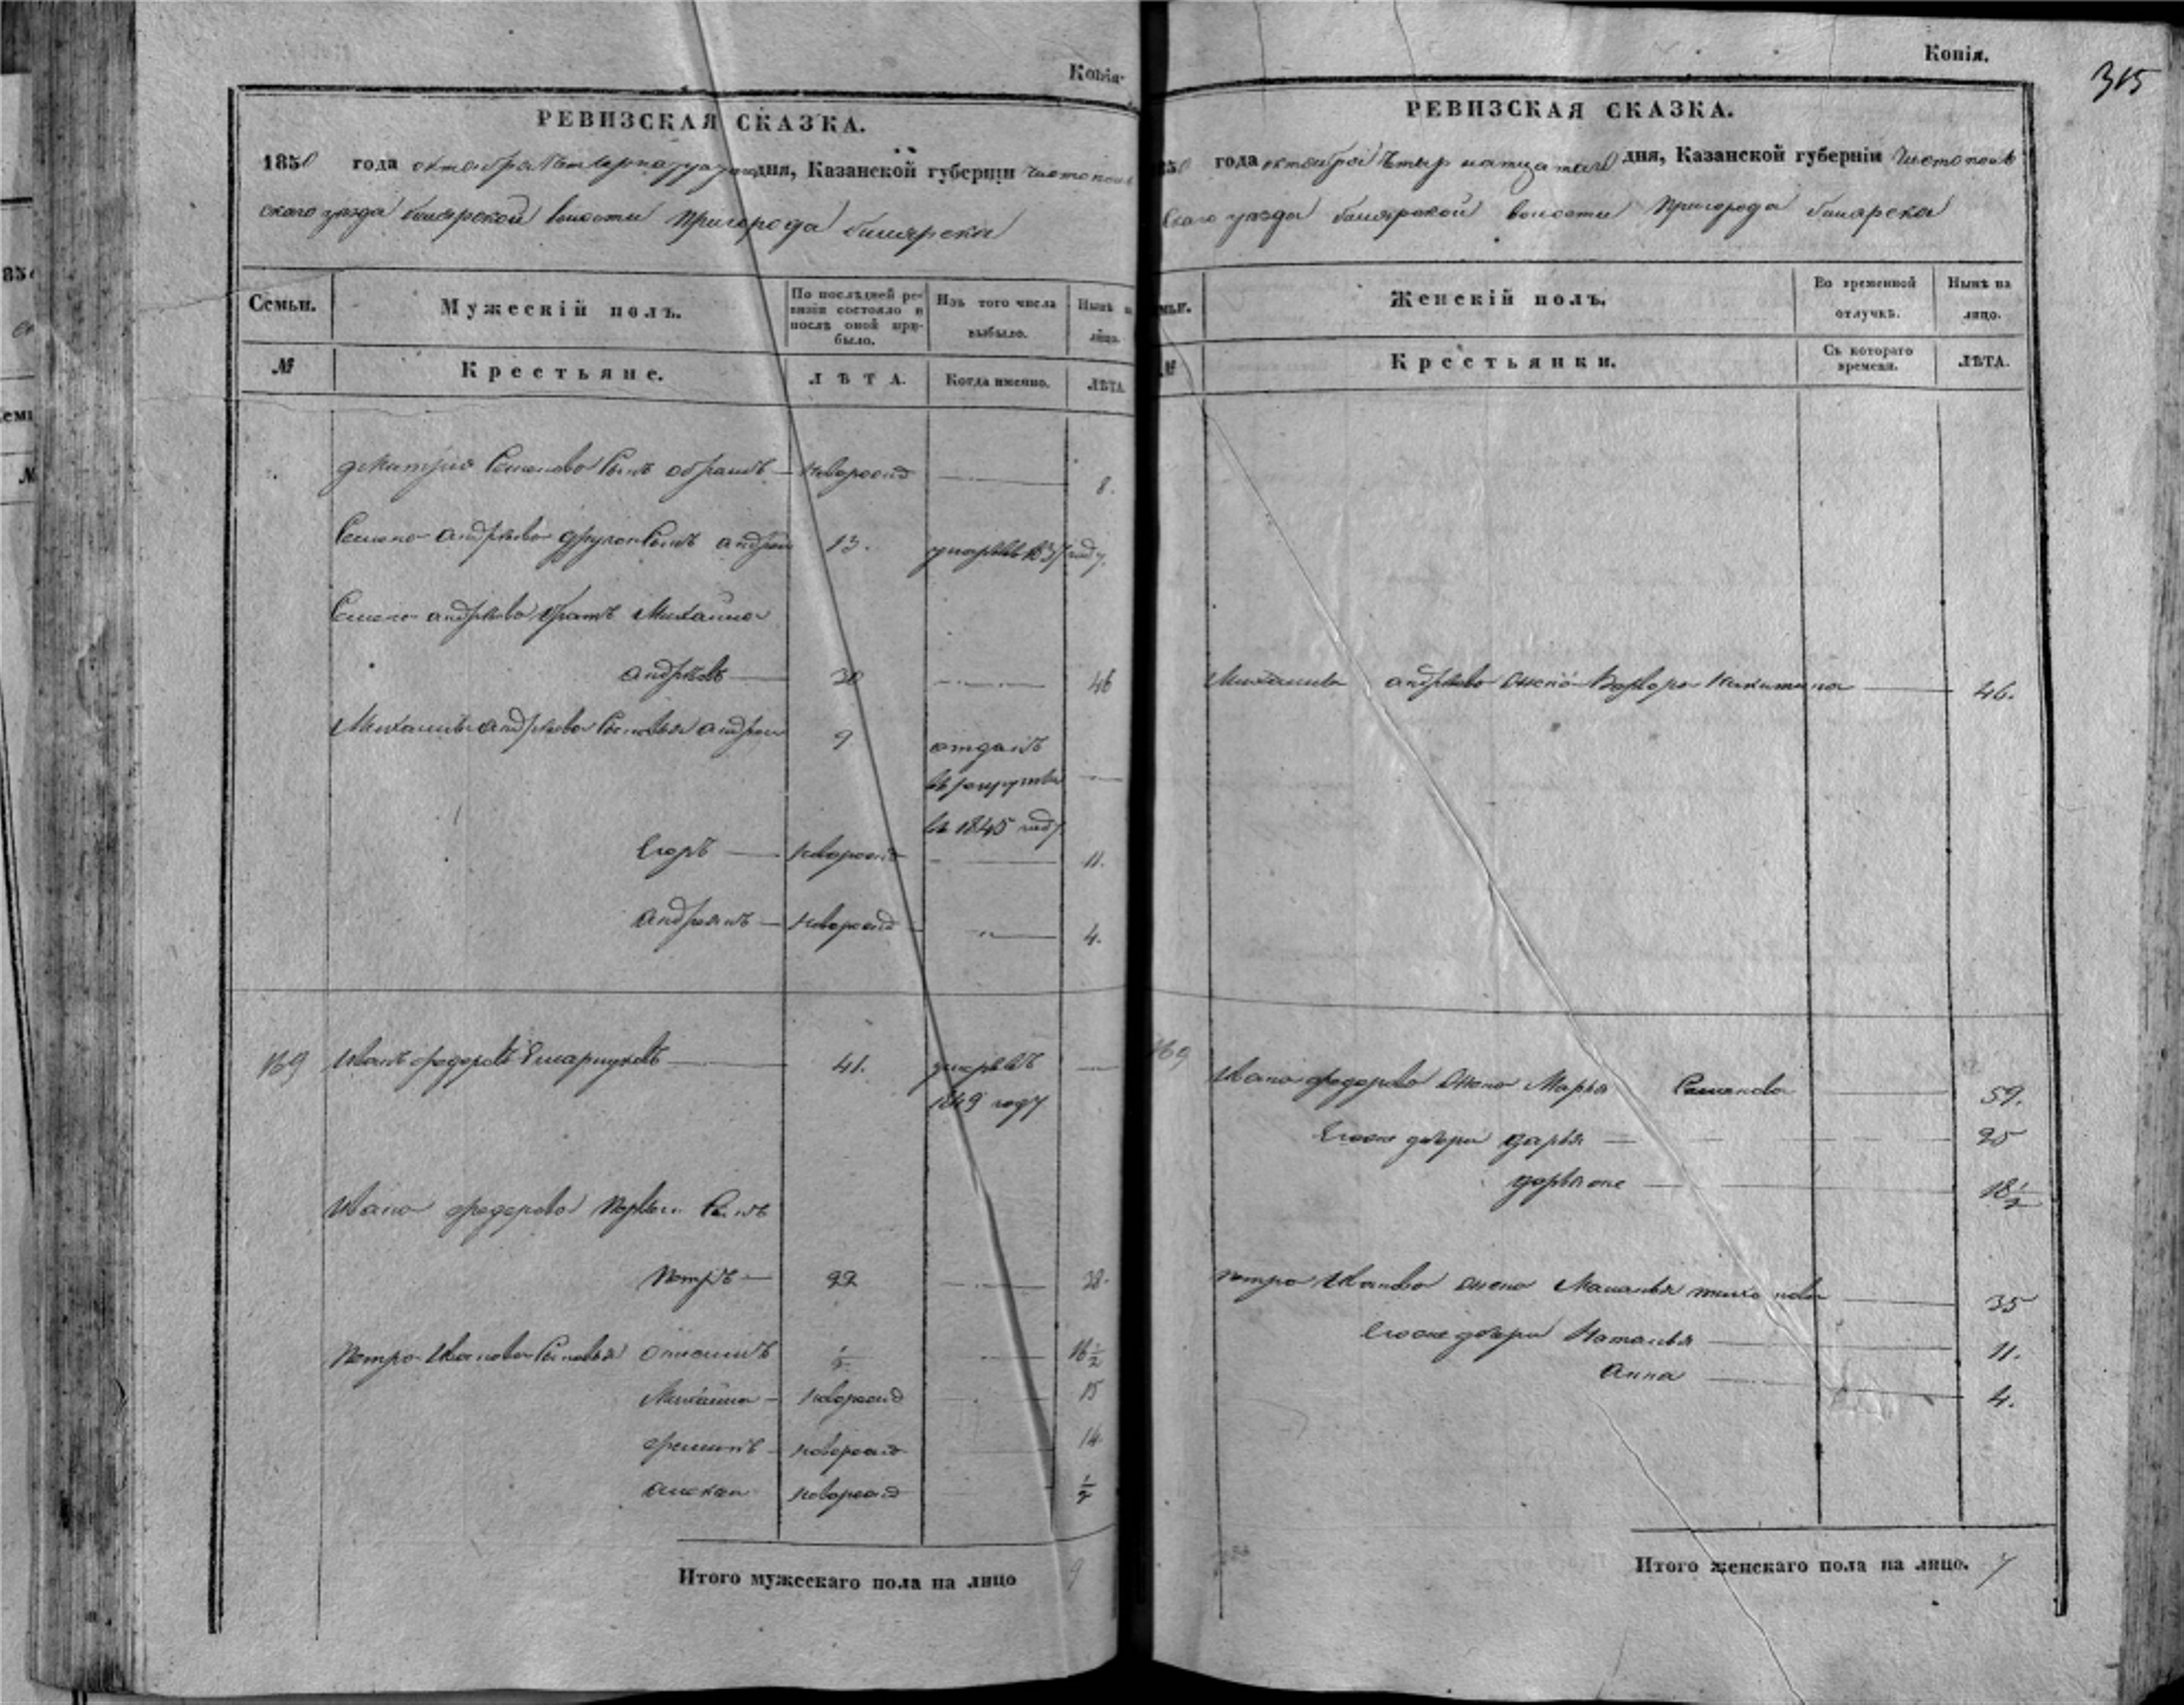 Копія.
РЕВИЗСКАЯ СКАЗКА.
1850 года октября четырнатцатого дня, Казанской губерніи Чистополь
скаго уезда билярской волости Пригорода билярска
Семьи.
Мужескій полъ.
По послѣдней ре-
визіи состояло и
послѣ оной при-
было.
Изъ того числа
выбыло.
Нынѣ н
лицо.
№
Крестьяне.
ЛѢТА.
Когда именно.
ЛѢТА
дмитрия Семенова сынъ новорожд 8.
Семена андреева другой сынъ андрей 13. умеръ въ 1837 году.
Семена андреева братъ Михайла
андреевъ 30 46
Михайлы андреева сыновья андрей 9 отданъ
въ рекруты
въ 1845 году
Егоръ новорожд 11.
андреянъ новорожд 4.
169 Иванъ федоровъ 41. умеръ въ
1849 году
Ивана федорова первой сынъ
Петръ 22 38.
Петра Иванова сыновья 1/2 16 1/2
Михайла новорожд 15
новорожд 14
новорожд 1/2
Итого мужескаго пола на лицо 9
Копія.
315
РЕВИЗСКАЯ СКАЗКА.
850 года октября четырнатцатаго дня, Казанской губерніи Чистополь
скаго уезда билярской волости Пригорода билярска
мьи.
Женскій полъ.
Во временной
отлучкѣ.
Нынѣ на
лицо.
№
Крестьянки.
Съ котораго
времени.
ЛѢТА.
Михайлы андреева жена Варвара Никитина 46.
169 Ивана федорова жена Марья Семенова 59.
Егоже дочери дарья 25
дарья же 18 1/2
Петра Иванова жена Маланья тихонова 35
Егоже дочери Наталья 11.
Анна 4.
Итого женскаго пола на лицо. 7